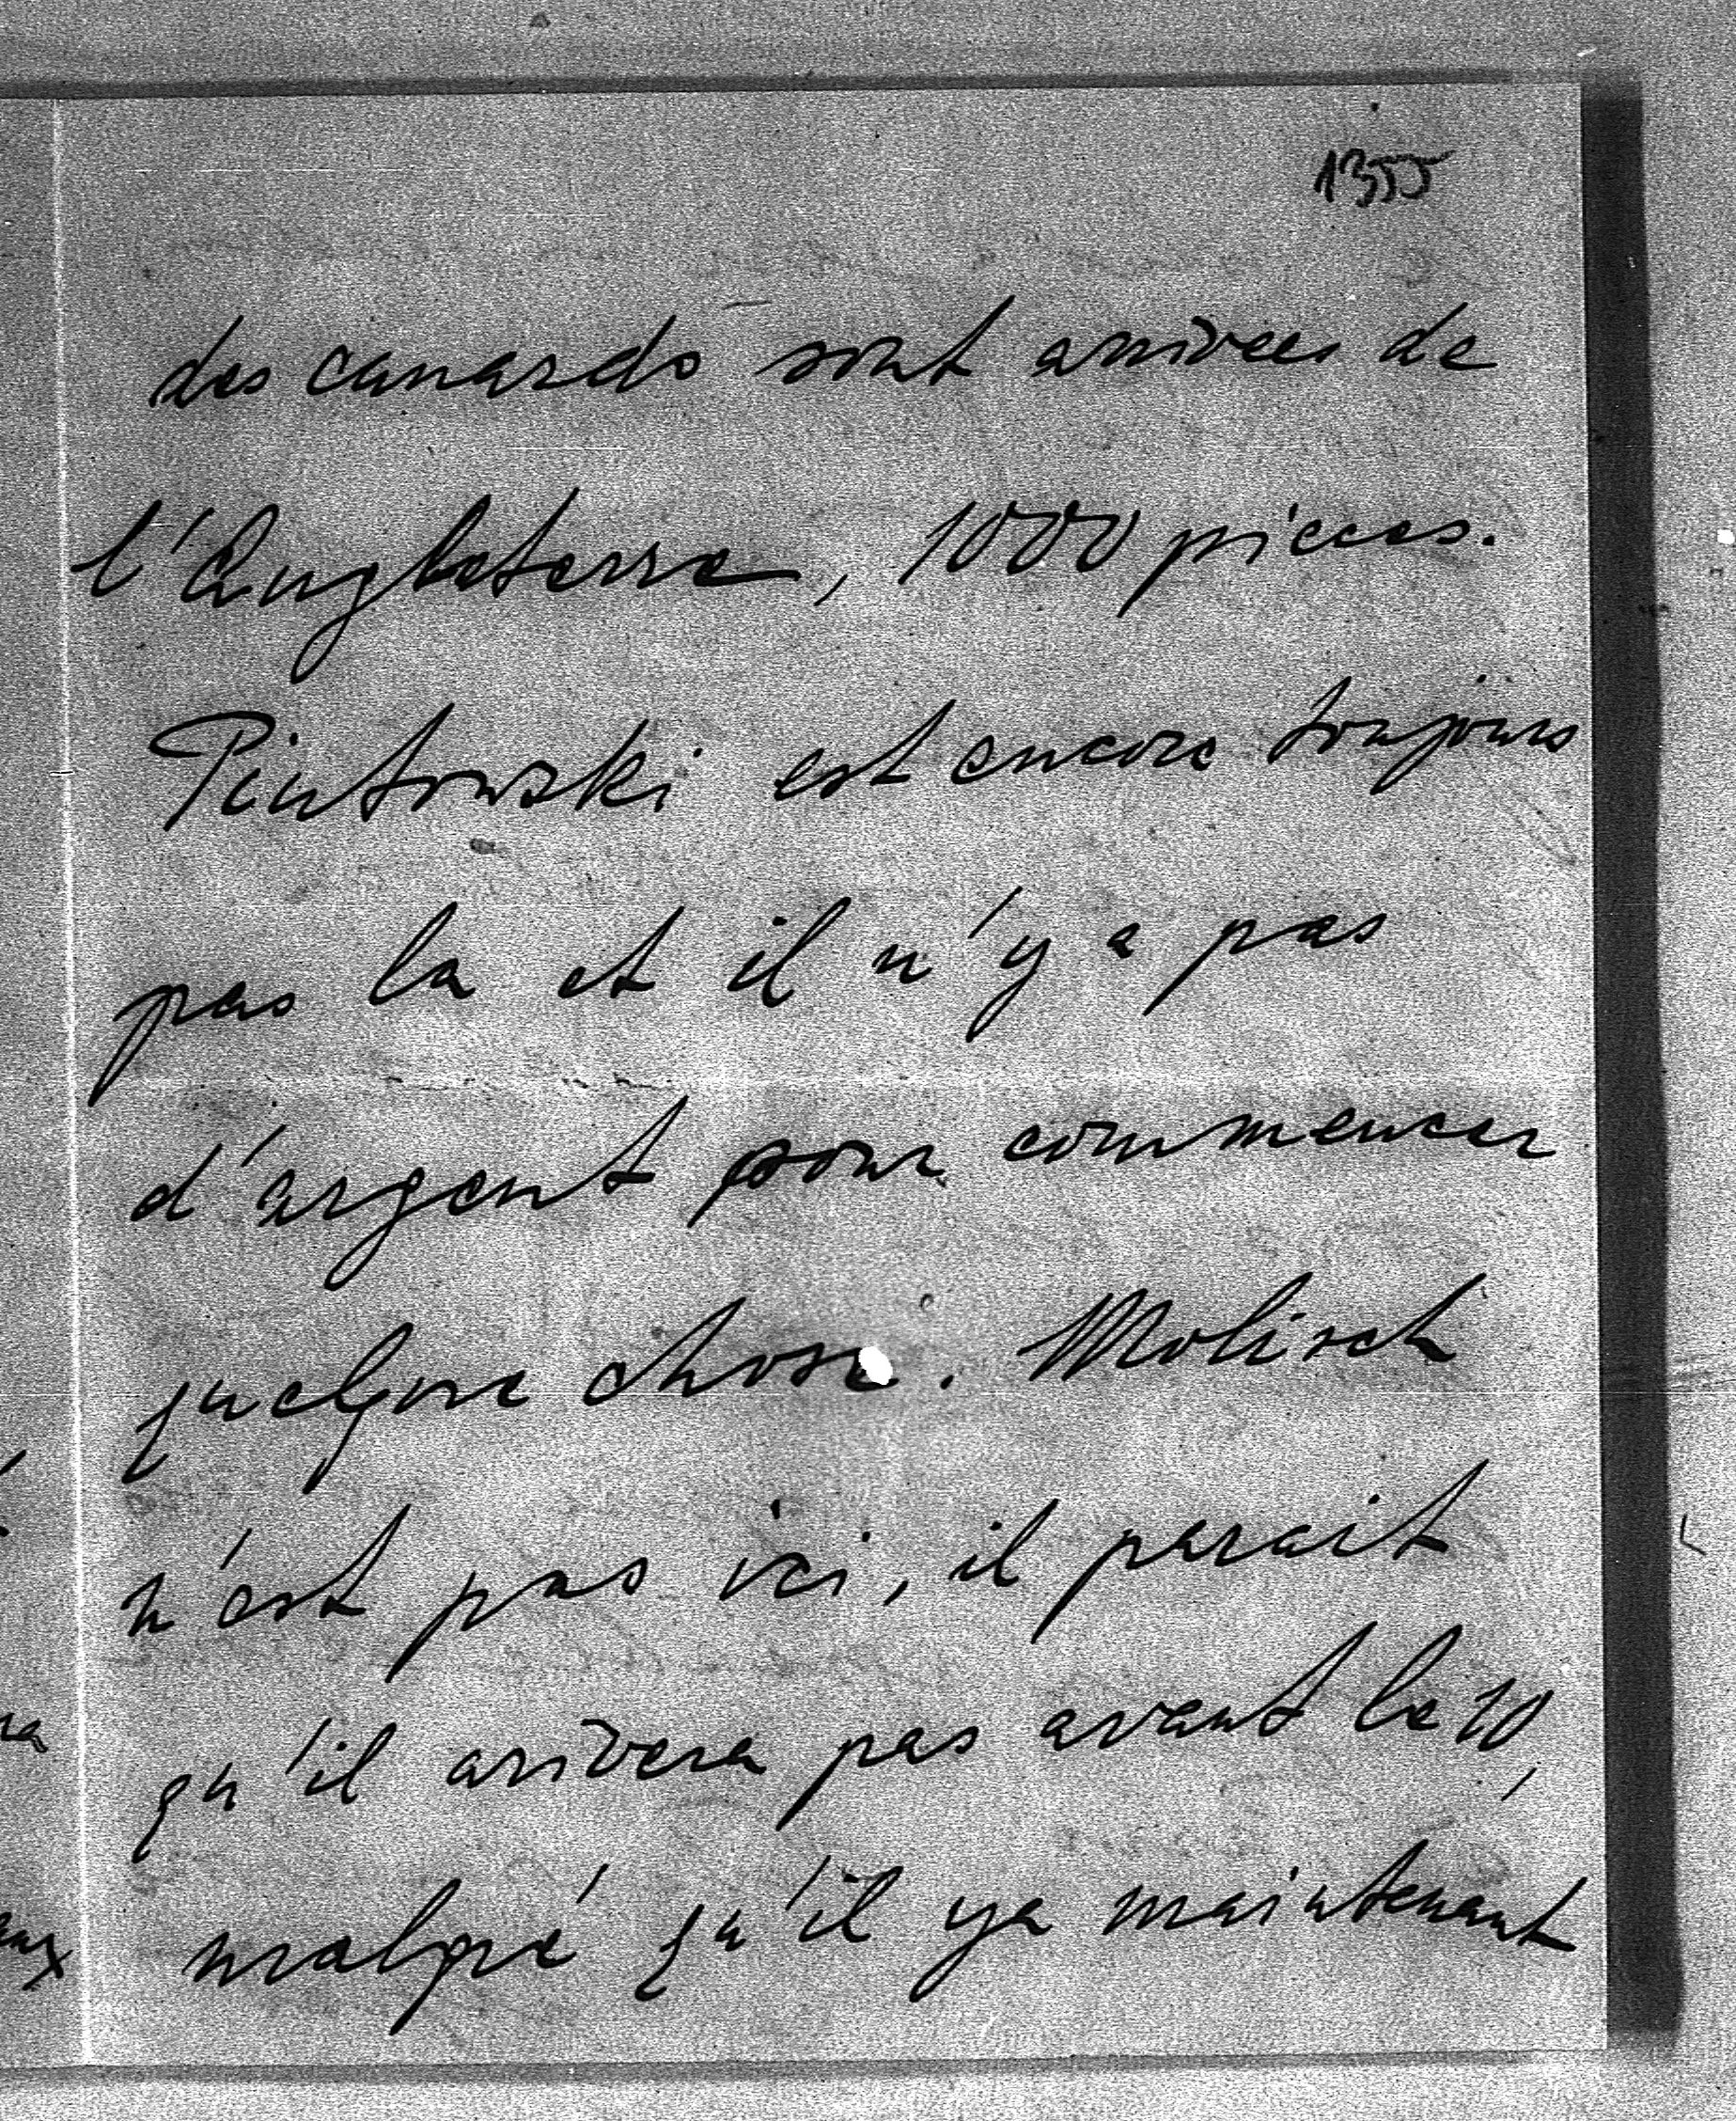 1355
des canards sont arrivees de
l'Engleterre, 1000 pieces.
Pintowski est encore toujours
pas la et il n'y a pas
d'argent pour commencer
quelque chose. Molisch
n'est pas ici, il parait
qu'il arrivera pas avant le 10,
malgré qu'il ya maintenant